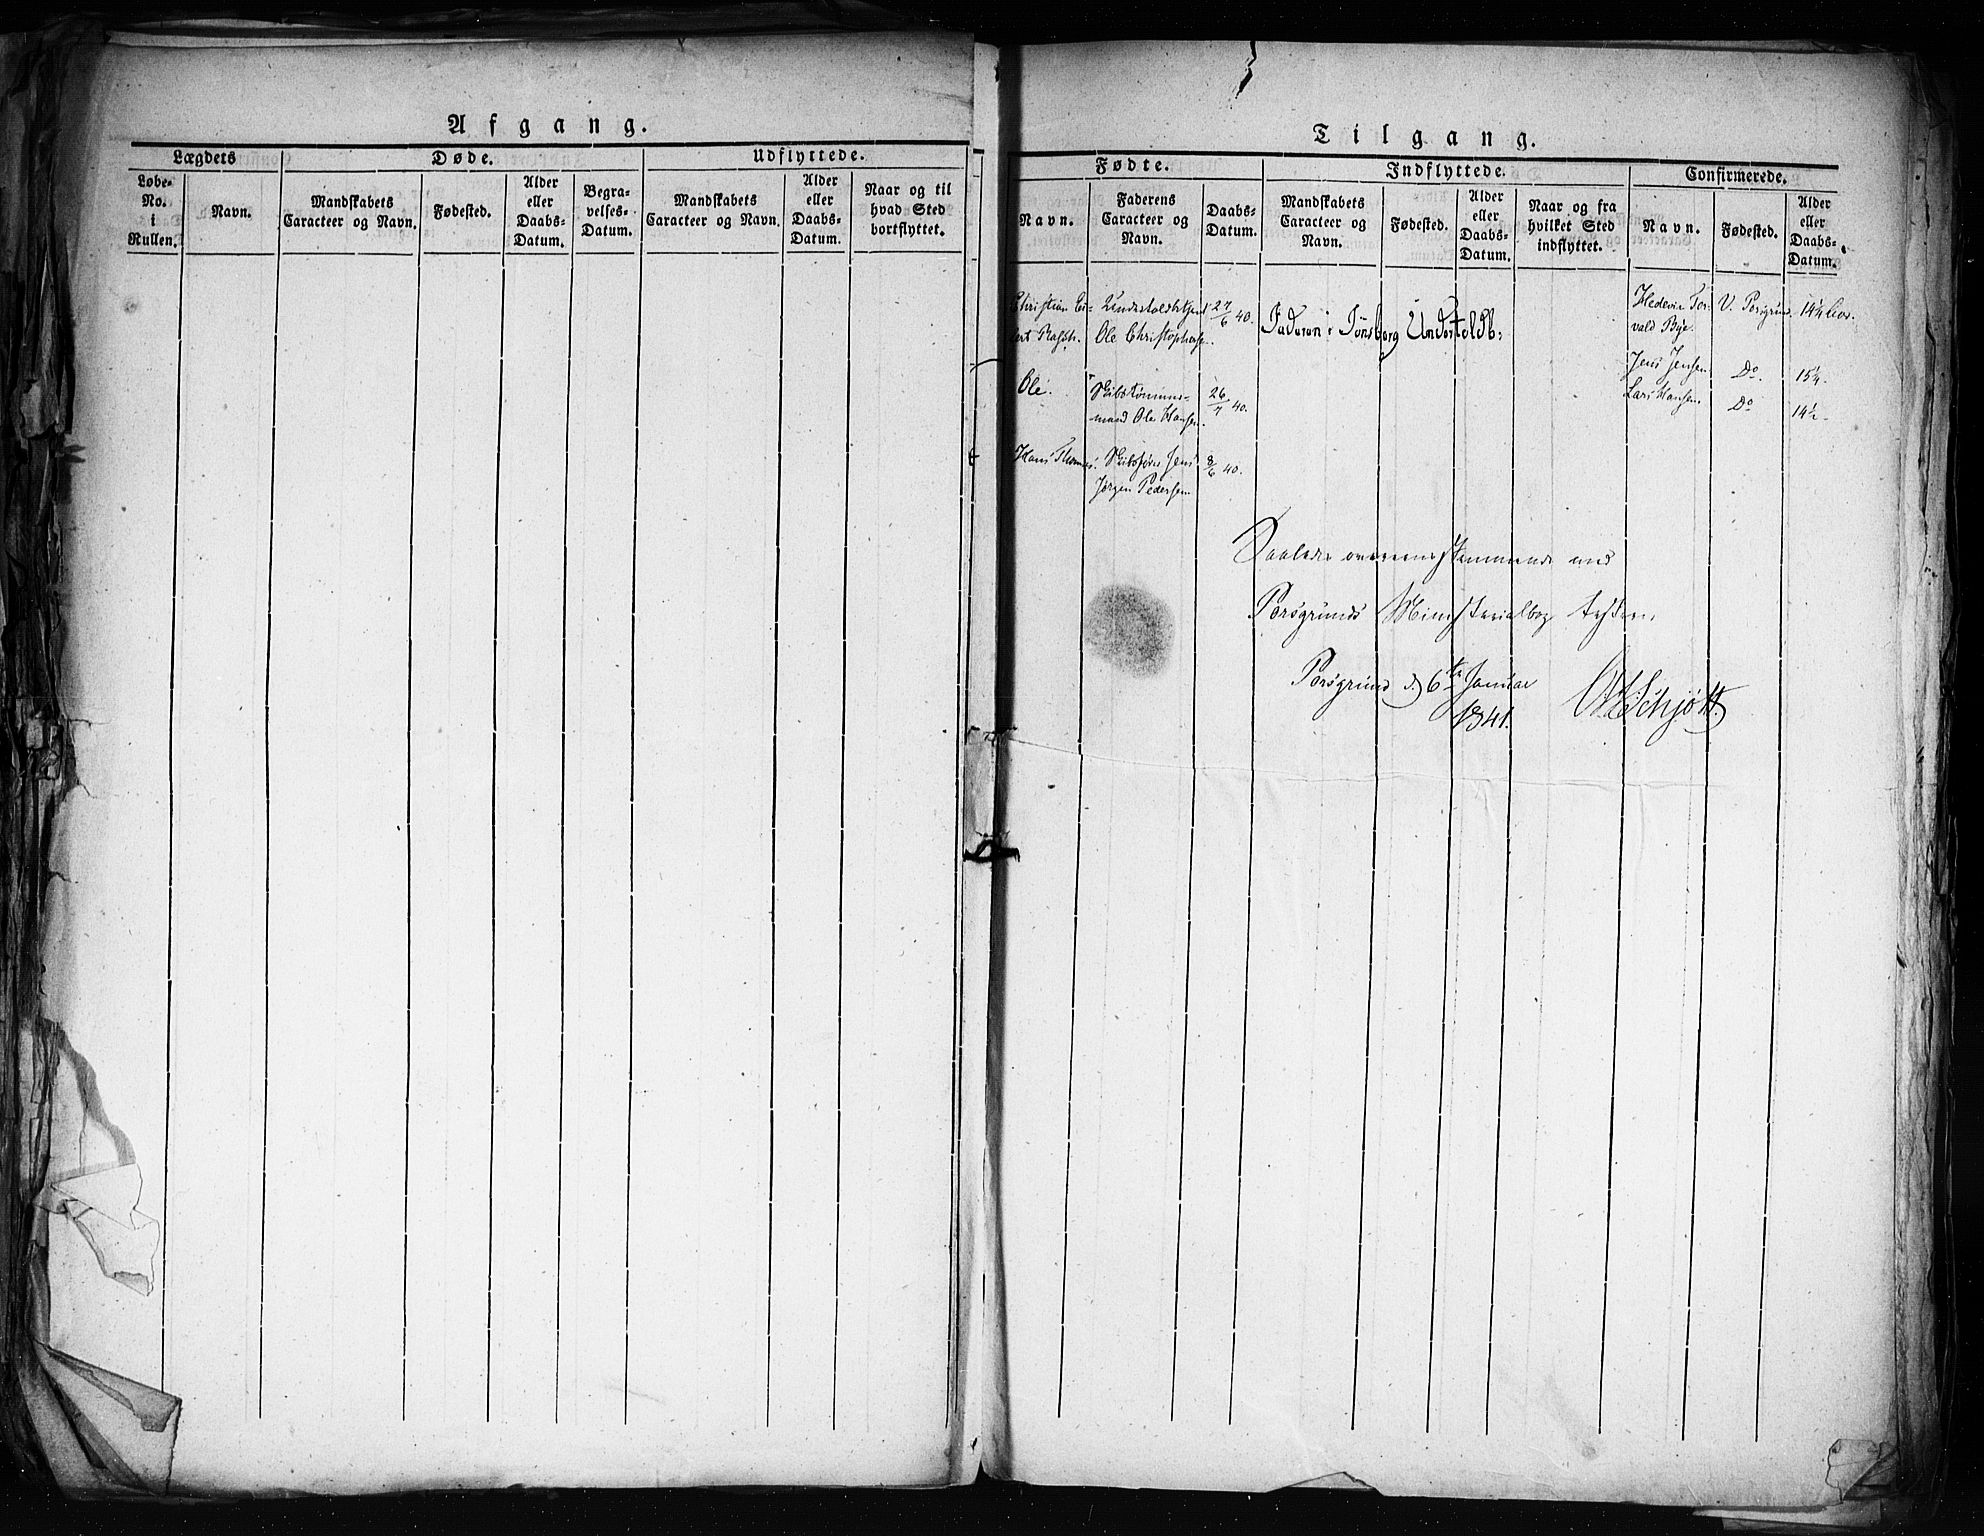 Afgang.
Lægdets
Døde.
Udflyttede.
Løbe-
No.
i
Rullen.
Navn.
Mandskabets
Caracteer og Navn.
Fødested.
Alder
eller
Daabs-
Datum.
Begra-
velses-
Datum.
Mandskabets
Caracteer og Navn.
Alder
eller
Daabs-
Datum.
Naar og til
hvad Sted
bortflyttet.
Tilgang.
Fødte.
Indflyttede.
Confirmerede.
Navn.
Faderens
Caracteer og
Navn.
Daabs-
Datum.
Mandskabets
Caracteer og
Navn.
Fødested.
Alder
eller
Daabs-
Datum.
Naar og fra
hvilket Sted
indflyttet.
Navn.
Fødested.
Alder
eller
Daabs-
Datum.
Christian Ei-
Ole Christophersen.
27/6 40.
Faderen i Tönsborg Undertoldb:
Hedevin Tor-
vald Bye.
V. Porsgrund.
14 1/4 Aar.
Jens Jensen
Do.
15 1/4.
Lars Hansen.
Do
14 1/2
Ole.
Skibstömmer-
mand Ole Hansen.
26/7 40.
Hans Thomas.
Skibsförer Jens
Jørgen Pedersen
8/6 40.
Saaledes overeensstemmende med
Porsgrunds Ministerialbog
Porsgrund d. 6te Januar
1841.
Schjøtt.